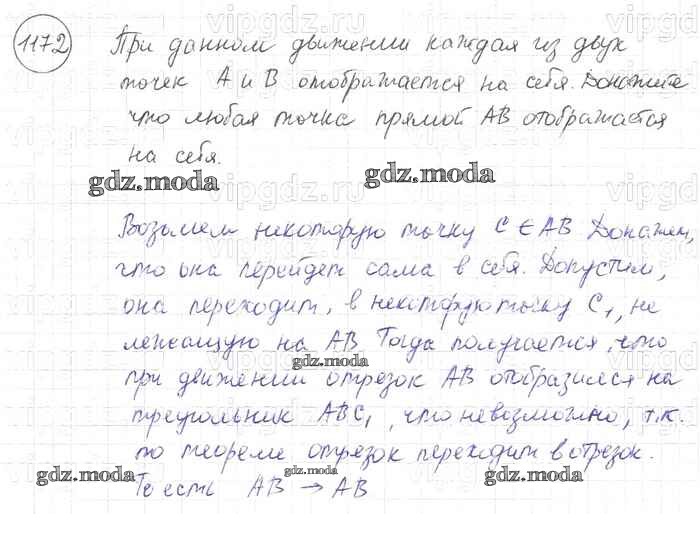 1172 При данном движении каждая из двух
точек A и B отображается на себя. Докажите
что любая точка прямой AB отображается
на себя.
gdz.moda gdz.moda
Возьмем некоторую точку C ∈ AB Докажем,
что она перейдет сама в себя. Допустим,
она переходит, в некоторую точку C₁, не
лежащую на AB Тогда получается, что
gdz.moda
при движении отрезок AB отобразился на
треугольник ABC₁, что невозможно, т.к.
по теореме отрезок переходит в отрезок.
gdz.moda gdz.moda
То есть AB → AB